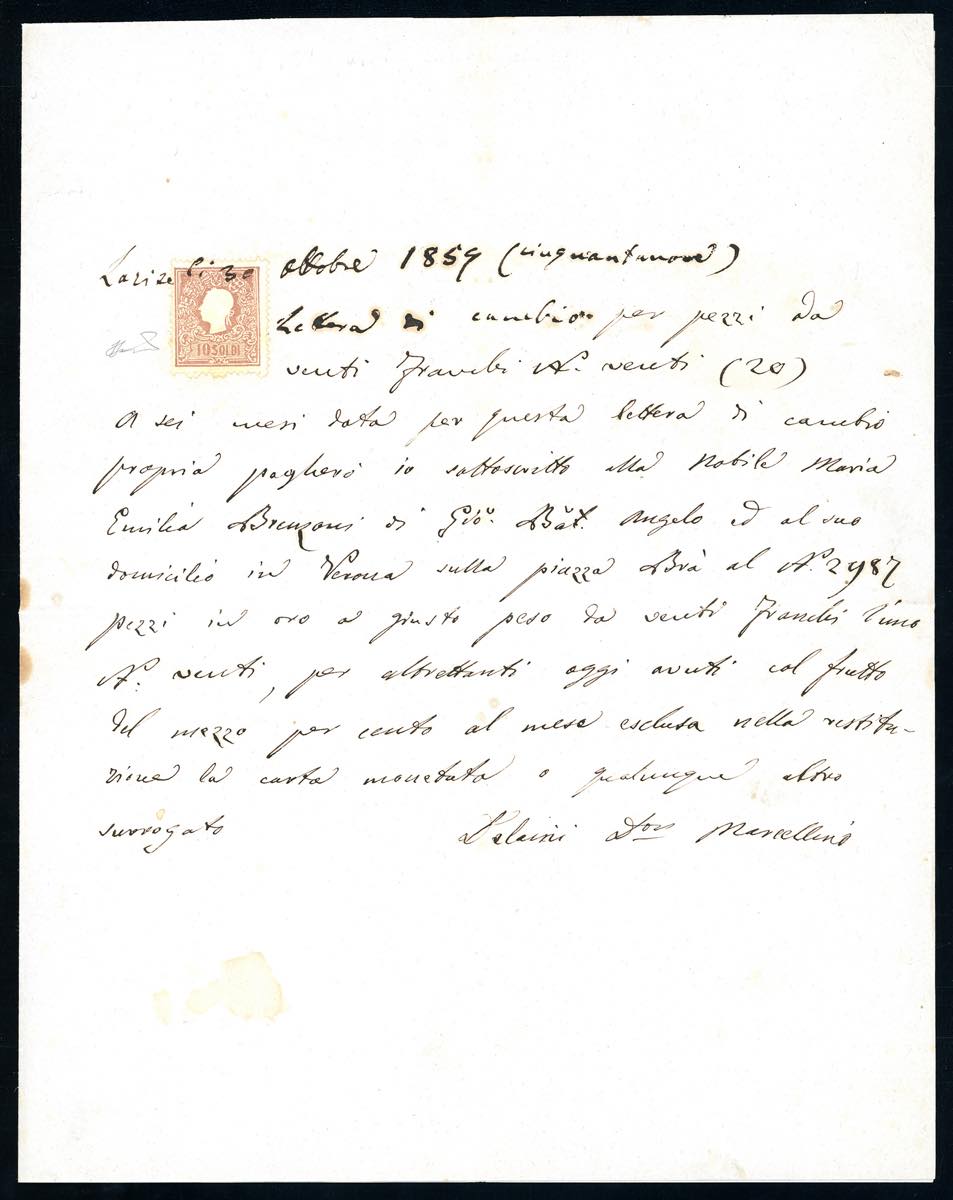 Lazise li 30 ottobre 1859 (cinquantanove)
Lettera di cambio per pezzi da
10 SOLDI
venti Franchi N.º venti (20)
A sei mesi data per questa lettera di cambio
propria pagherò io sottoscritto alla Nobile Maria
Emilia Brenzoni di Gio. Bat. Angelo ed al suo
domicilio in Verona sulla piazza Brà al N.º 2987
pezzi in oro a giusto peso da venti Franchi l'uno
N.º venti, per altrettanti oggi avuti col frutto
del mezzo per cento al mese esclusa nella restitu-
zione la carta monetata o qualunque altro
surrogato
Delaini Dor Marcellino